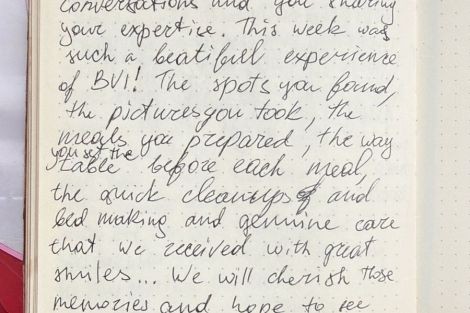 conversations and you sharing
your expertice. This week was
such a beatifull experience
of BVI! The spots you found,
the pictures you took, the
meals you prepared, the way
you set the
table before each meal,
the quick cleanups and
bed making and genuine care
that we received with great
smiles... We will cherish those
memories and hope to see